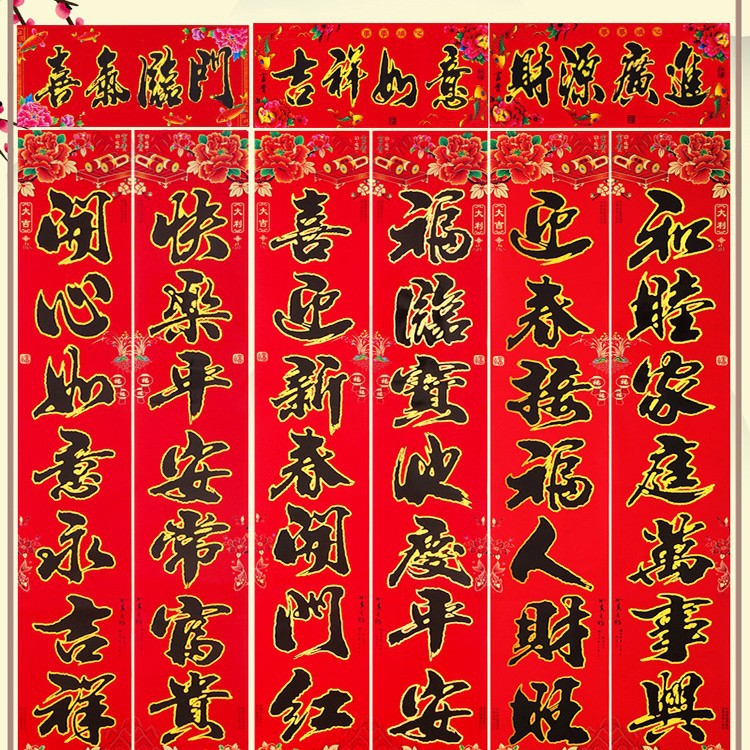 喜氣臨門
吉祥如意
財源廣進
開心如意永吉祥
大吉
快樂平安常富貴
大利
喜迎新春開門紅
大吉
福臨寶地慶平安
大利
迎春接福人財旺
大吉
和睦家庭萬事興
大利